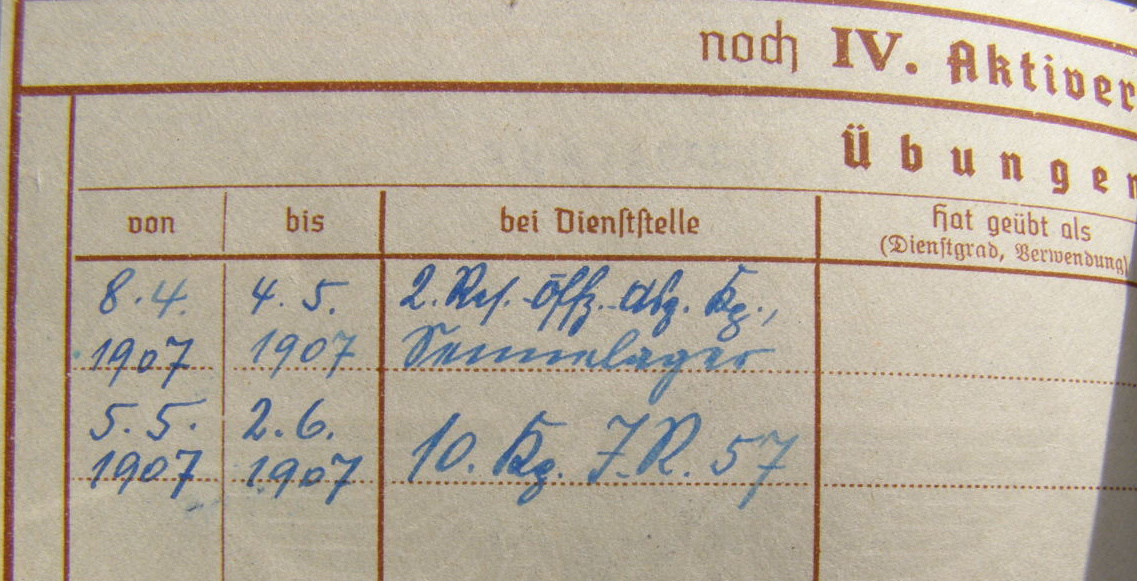 noch IV. Aktiver
Übungen
von bis bei Dienststelle Hat geübt als
(Dienstgrad, Verwendung)
8.4. 4.5. 2. Res. Offz. Asp. Kg.,
1907 1907 Sennelager
5.5. 2.6. 10. Kg. I.R. 57
1907 1907